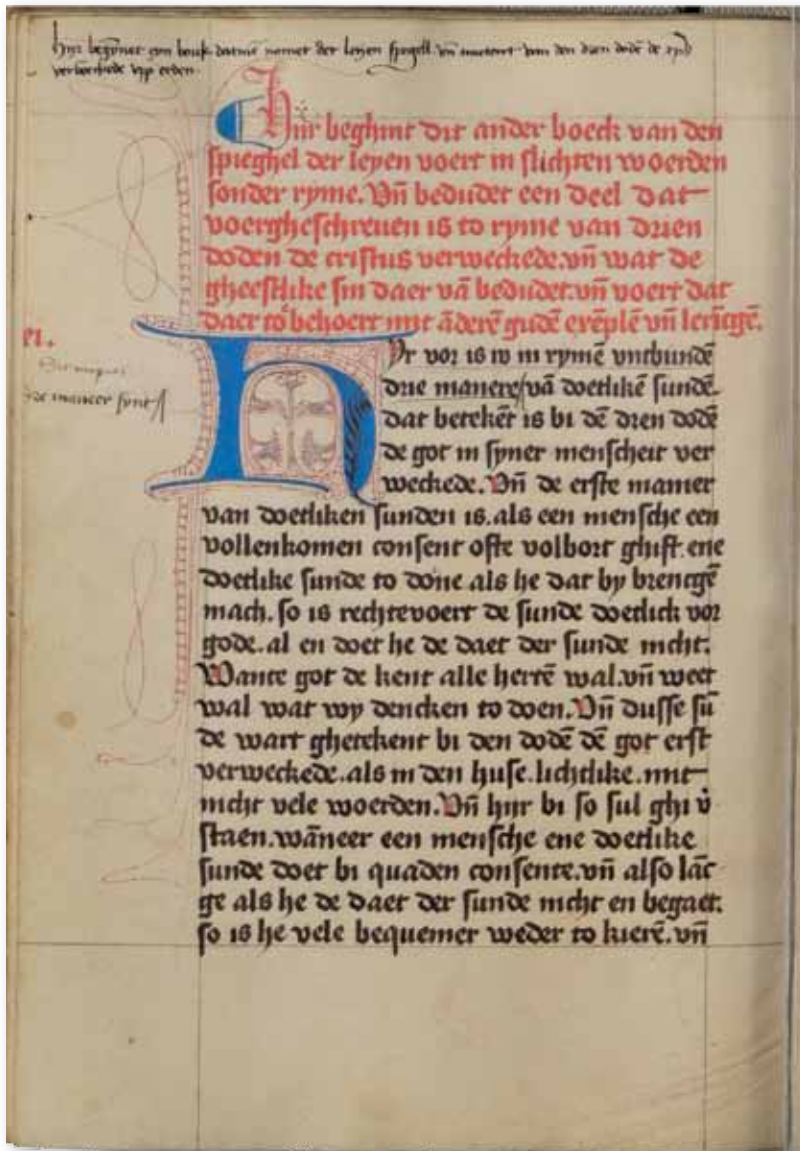 Hyr begynet eyn boick datme nomet der leyen spegell vn
verweckede vpp erden
Hiir beghint dit ander boeck van den
spieghel der leyen voert in slichten woerden
sonder ryme. Vn̄ beduder een deel dat
voergheschreuen is to ryme van drien
doden de cristus verweckede. vn̄ wat de
gheestlike sin daer vā bedudet. vn̄ voert dat
daer to behoert mit āderē gudē exēplē vn̄ lerīgē.
ei.
Hyr vor is iv in rymē vntbundē
drie manere vā doetlikē sundē.
de maneer synt
dat betekēt is bi dē drēn dodē
de got in syner menscheit ver
weckede. Vn̄ de erste manier
van doetliken sunden is. als een mensche een
vollenkomen consent ofte volbort ghift. ene
doetlike sunde to done als he dat by brengē
mach. so is rechtevoert de sunde doetlick vor
gode. al en doet he de daet der sunde nicht.
Wante got de kent alle hertē wal. vn̄ weet
wal wat wy dencken to doen. Vn̄ dusse sū
de wart gherekent bi den dodē dē got erst
verweckede. als in den huse. lichtlike. mit
nicht vele woerden. Vn̄ hyr bi so sul ghi v̄
staen. wāneer een mensche ene doetlike
sunde doet bi quaden consente. vn̄ also lāc
ge als he de daet der sunde nicht en begaet.
so is he vele bequemer weder to kierē. vn̄